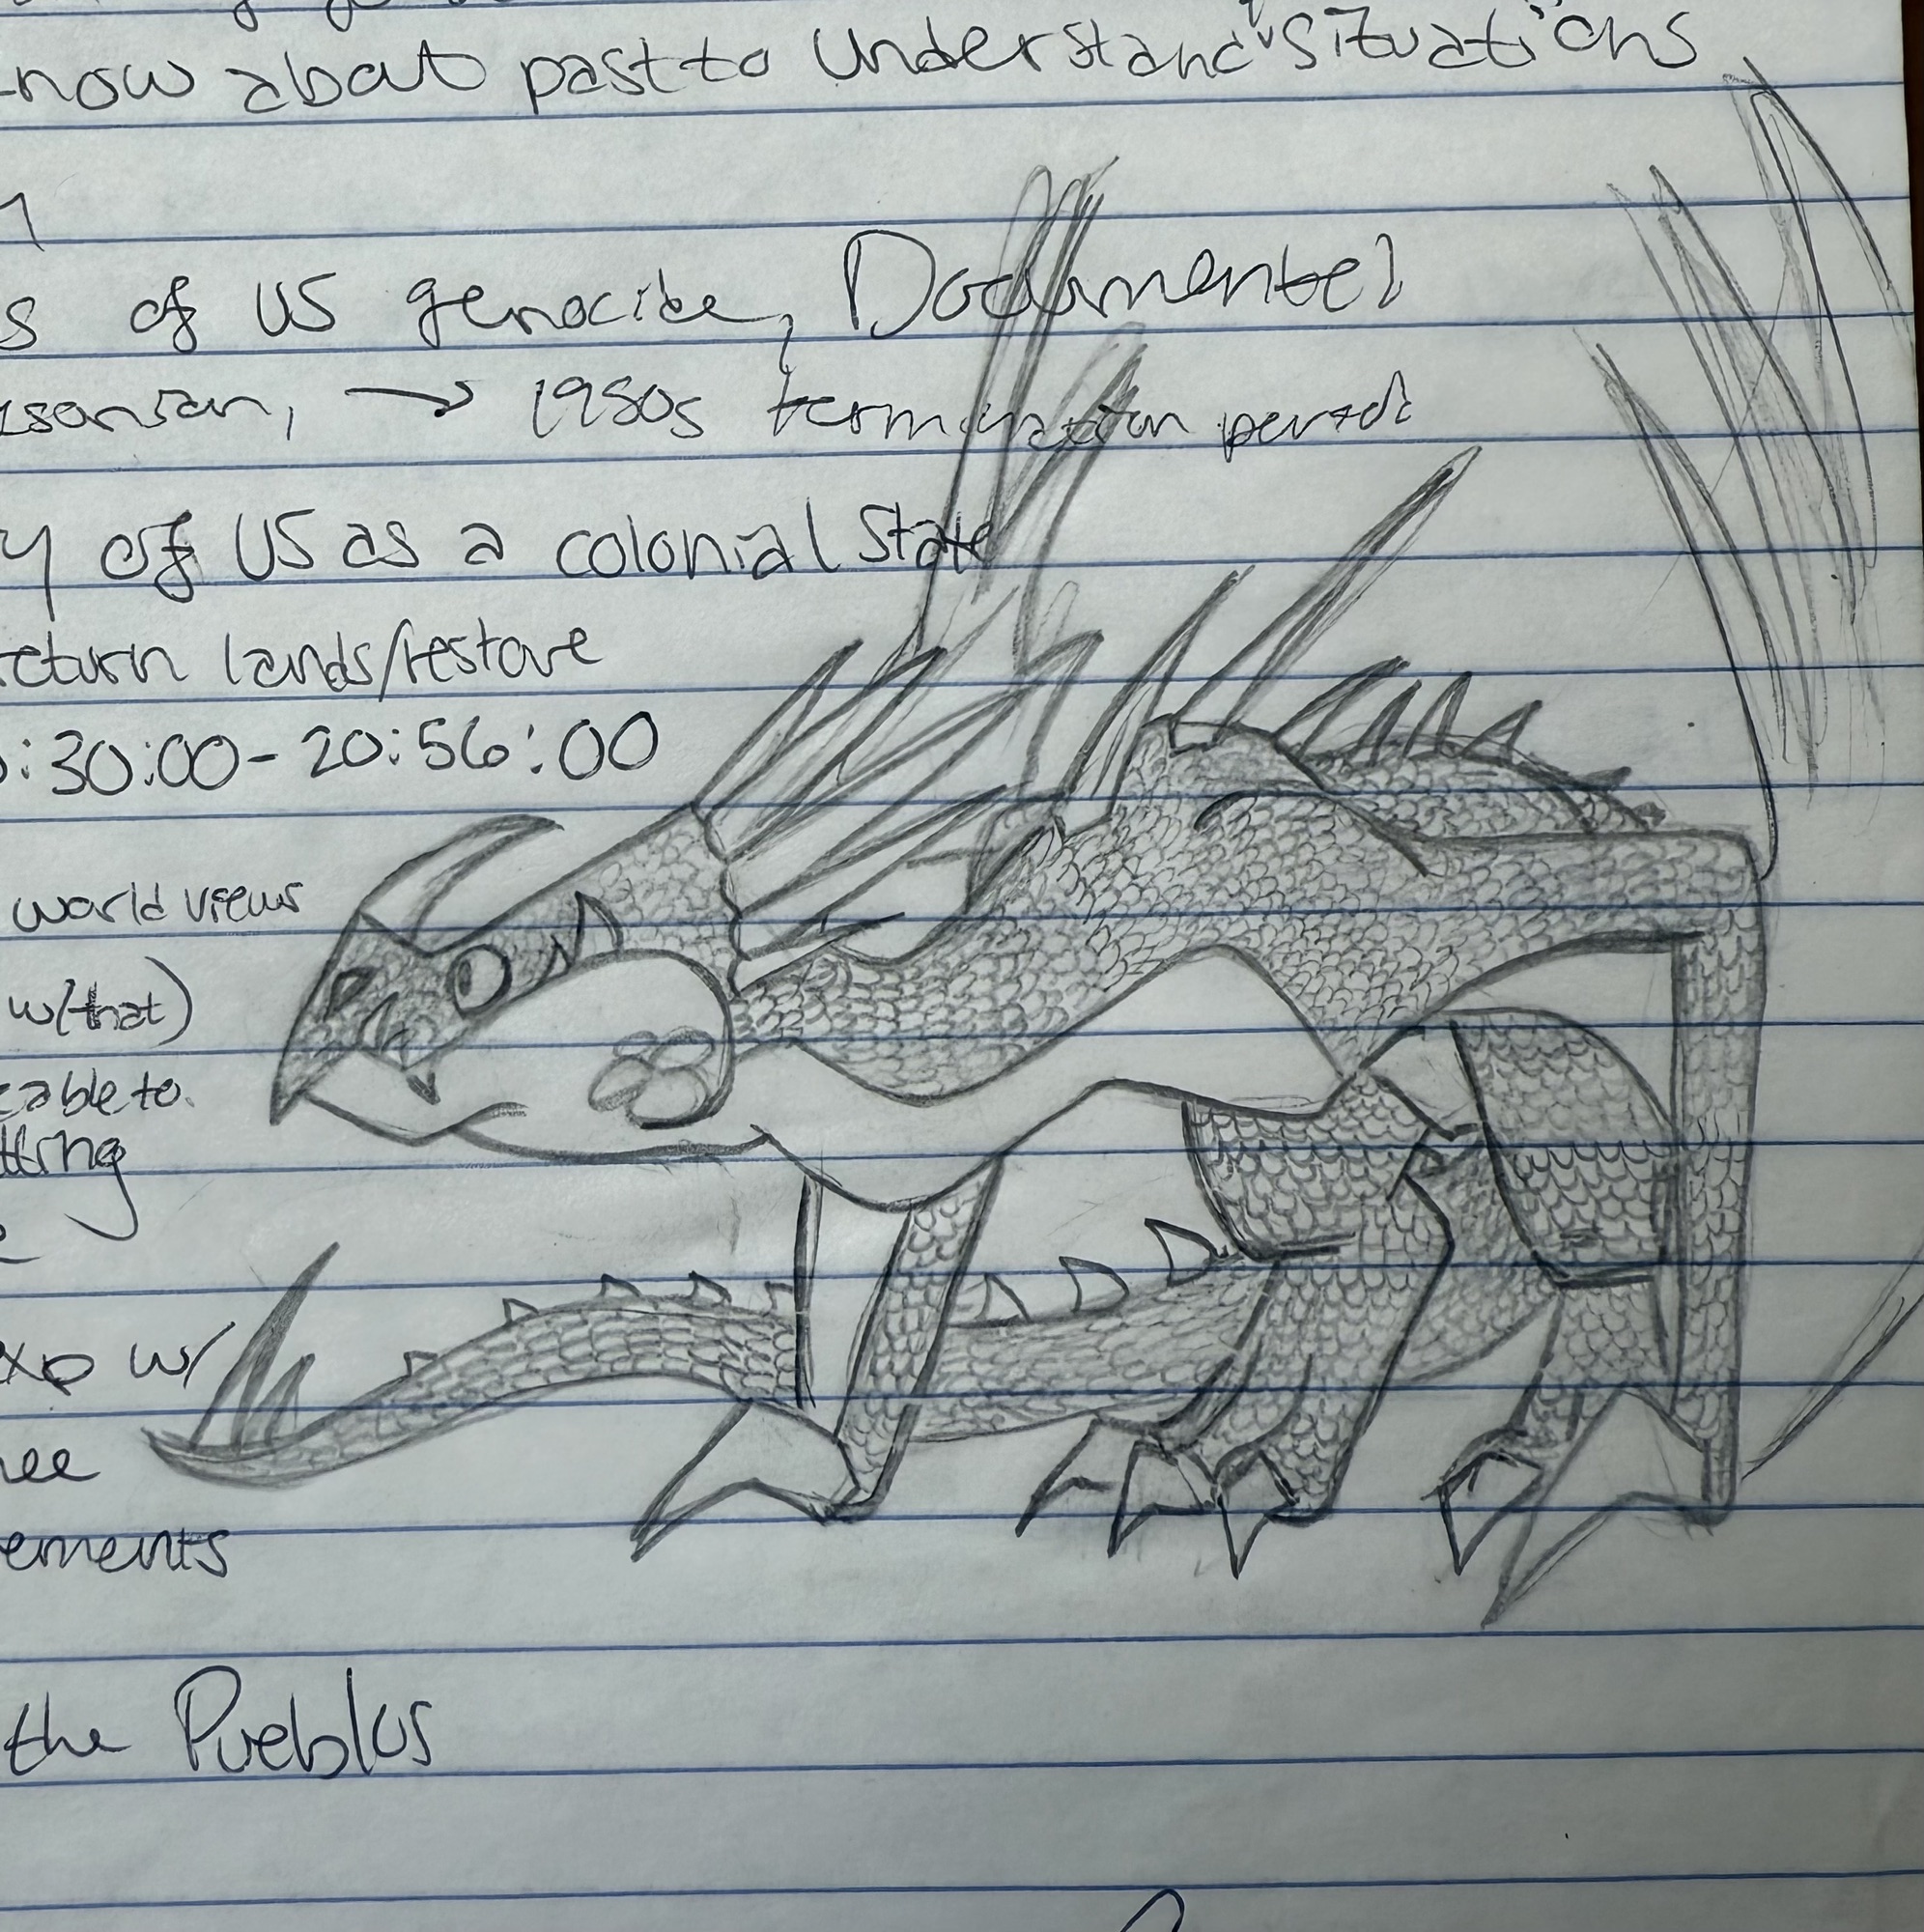 now about past to understand "situations"
s of US genocide, Documented
isonian, → 1950s termination period
y of US as a colonial state
return lands/restore
:30:00-20:56:00
world views
w/that)
able to
tting
exp w/
ee
ements
the Pueblos